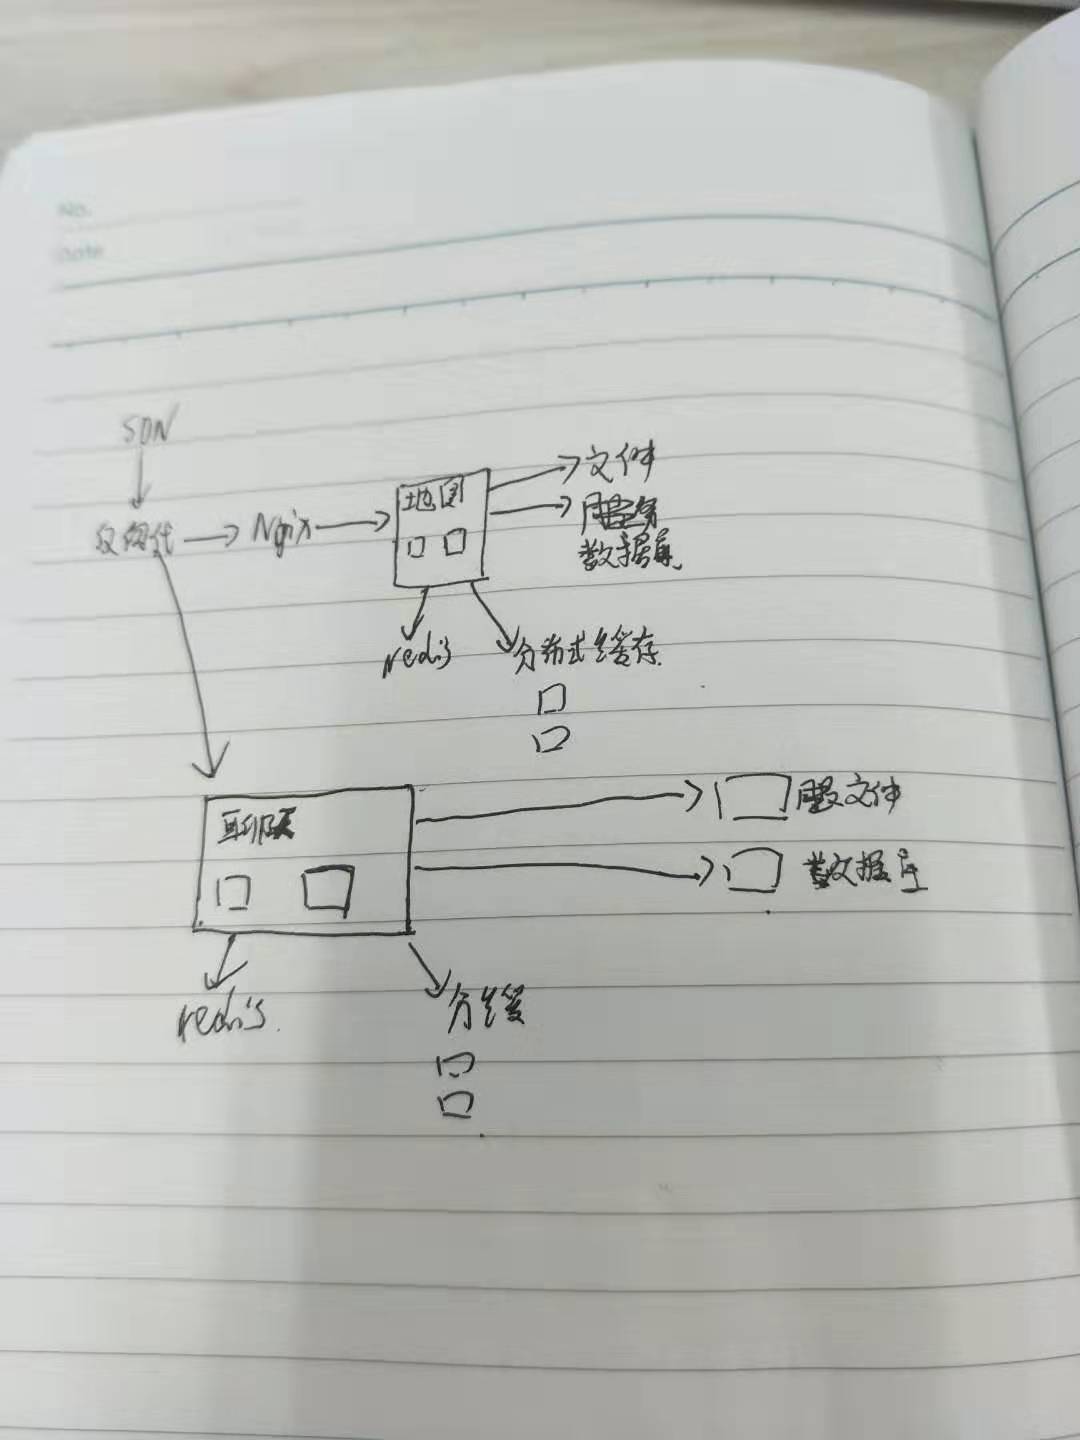 No.
Date
SDN
Ngix
地图
文件
数据库
redis
分布式缓存
聊天
文件
数据库
redis
分缓